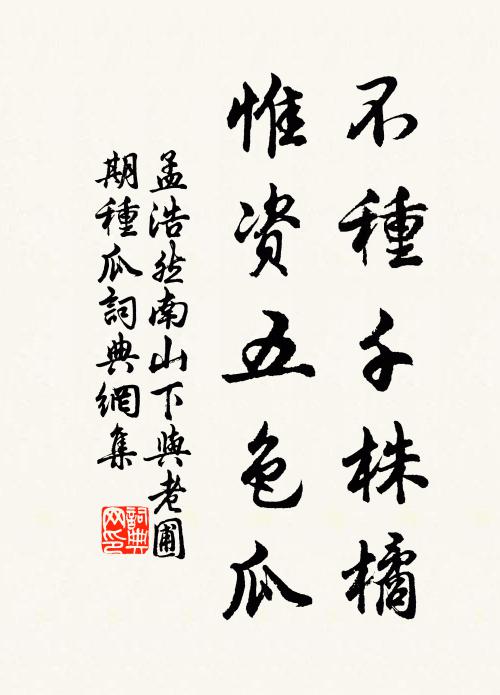 不種千株橘
惟资五色瓜
孟浩然南山下與老圃
期種瓜詞典網集
詞典
网印